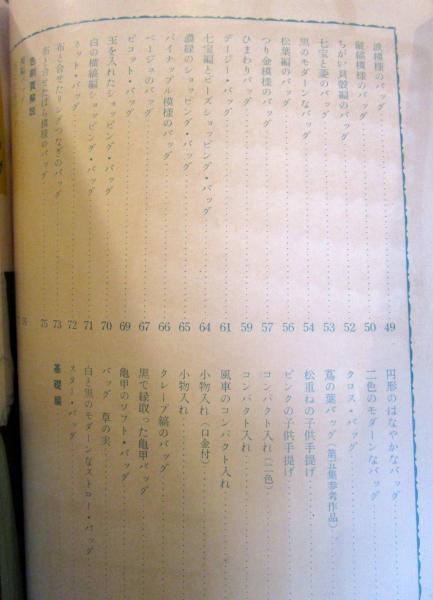 波模様のバッグ 49
縦縞模様のバッグ 50
ちがい貝殻編のバッグ 52
七宝と菱のバッグ 53
黒のモダーンなバッグ 54
松葉編のバッグ 56
つり金模様のバッグ 57
ひまわりバッグ 59
デージー・バッグ 61
七宝編とビーズショッピング・バッグ 64
濃緑のショッピング・バッグ 65
パイナップル模様のバッグ 66
ベージュのバッグ 67
ピコット・バッグ 69
玉を入れたショッピング・バッグ 70
白の横縞編ショッピング・バッグ 71
ネット・バッグ 72
布と合せたリングつなぎのバッグ 73
布と合せたばら模様のバッグ 75
色刷頁解説
円形のはなやかなバッグ
二色のモダーンなバッグ
クロス・バッグ
蔦の葉バッグ(第五集参考作品)
松重ねの子供手提げ
ピンクの子供手提げ
コンパクト入れ(二色)
コンパクト入れ
風車のコンパクト入れ
小物入れ(口金付)
小物入れ
クレープ縞のバッグ
黒で縁取った亀甲バッグ
亀甲のソフト・バッグ
バッグ 草の実
白と黒のモダーンなストロー・バッグ
スター・バッグ
基礎編